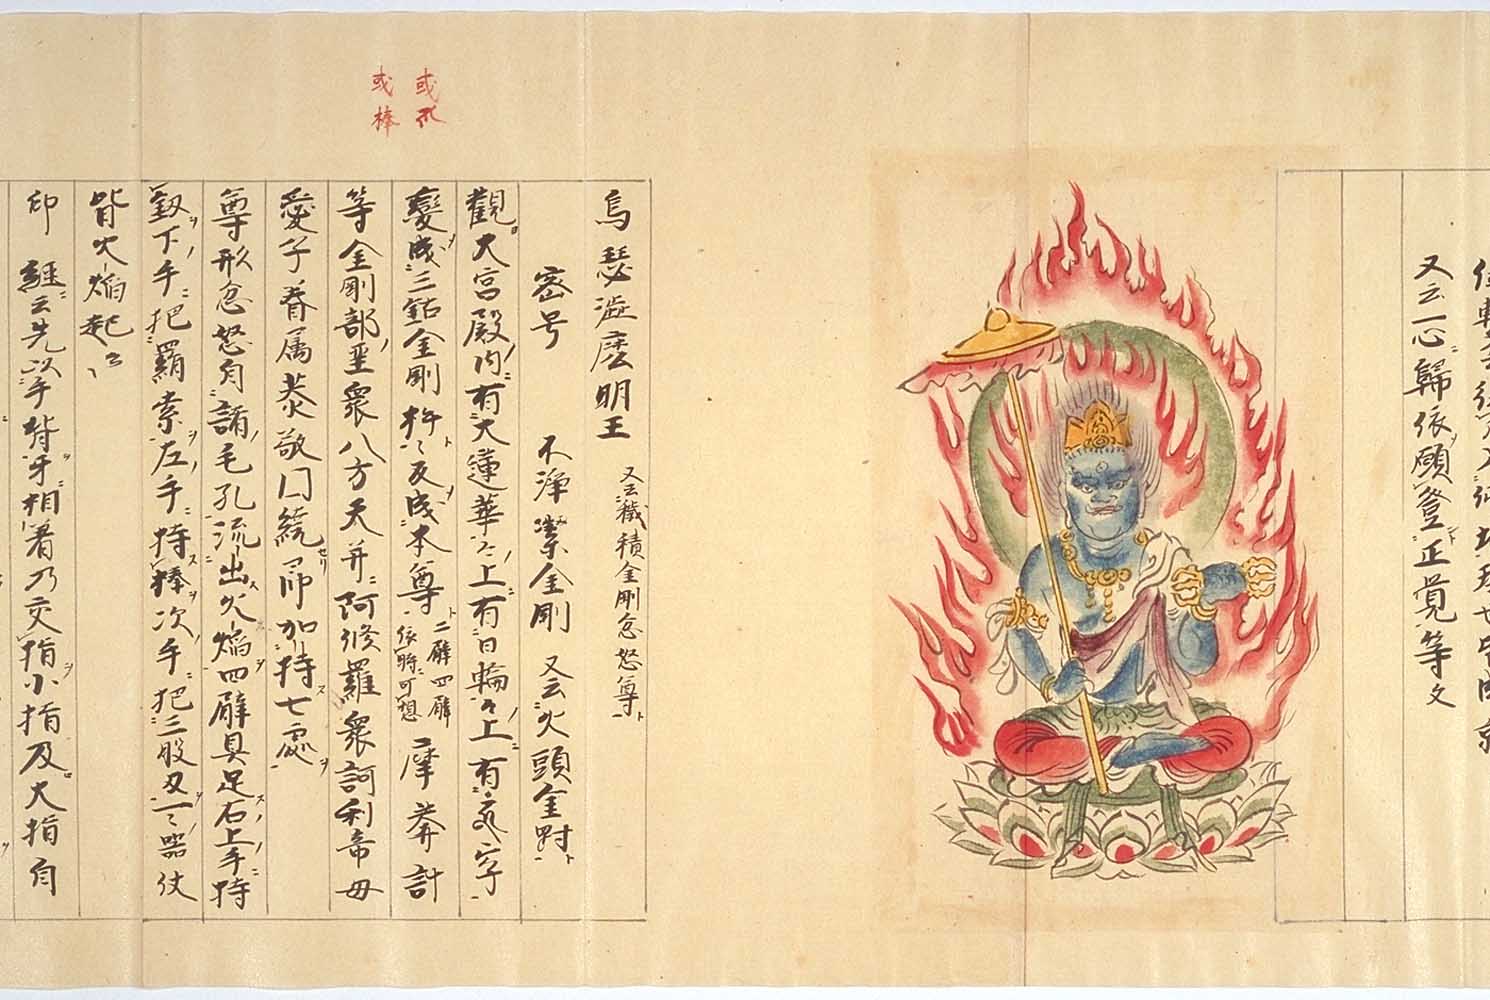 又云一心歸依願登正覚等文
烏瑟澁麽明王 又云穢積金剛忿怒尊ト
密号 不淨潔金剛 又云火頭金剛ト
觀大宮殿内有大蓮華々上有日輪々上有字
變成三鈷金剛杵々反成本尊 二臂四臂依時可想 摩莽計
等金剛部聖衆八方天并阿修羅衆訶利帝母
愛子眷属恭敬囲繞セリ 帀加持七處
尊形忿怒身諸毛孔流出火焔四臂具足右上手持
釼下手把羂索左手持棒次手把三股叉一々器仗
皆火焔起云々
印 經云先以手背牙相著乃交指小指及大指自
或爪
或棒